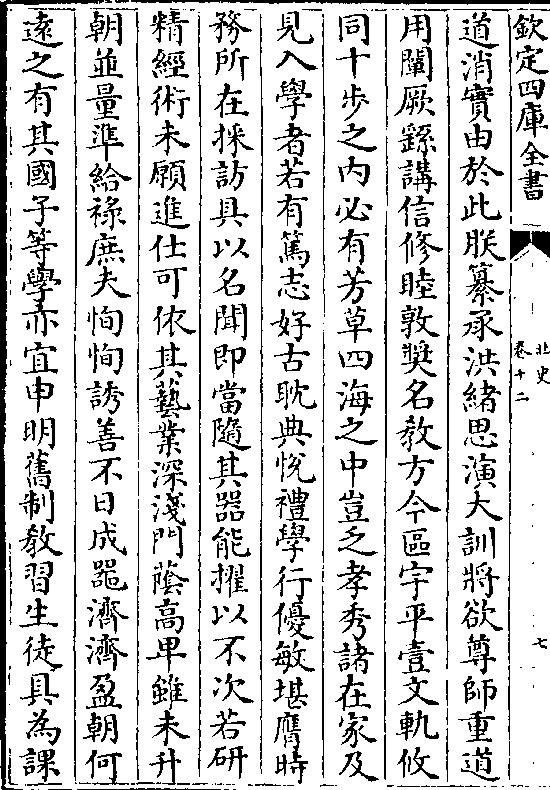 欽定四庫全書
北史
卷十二
七
道消實由於此朕纂承洪緒思演大訓將欲尊師重道
用闡厥繇講信修睦敦奬名教方今區宇平壹文軌攸
同十步之内必有芳草四海之中豈乏孝秀諸在家及
見入學者若有篤志好古耽典悅禮學行優敏堪膺時
務所在採訪具以名聞即當隨其器能擢以不次若研
精經術未願進仕可依其藝業深淺門蔭高卑雖未升
朝並量準給祿庶夫恂恂誘善不日成器濟濟盈朝何
遠之有其國子等學亦宜申明舊制教習生徒具為課